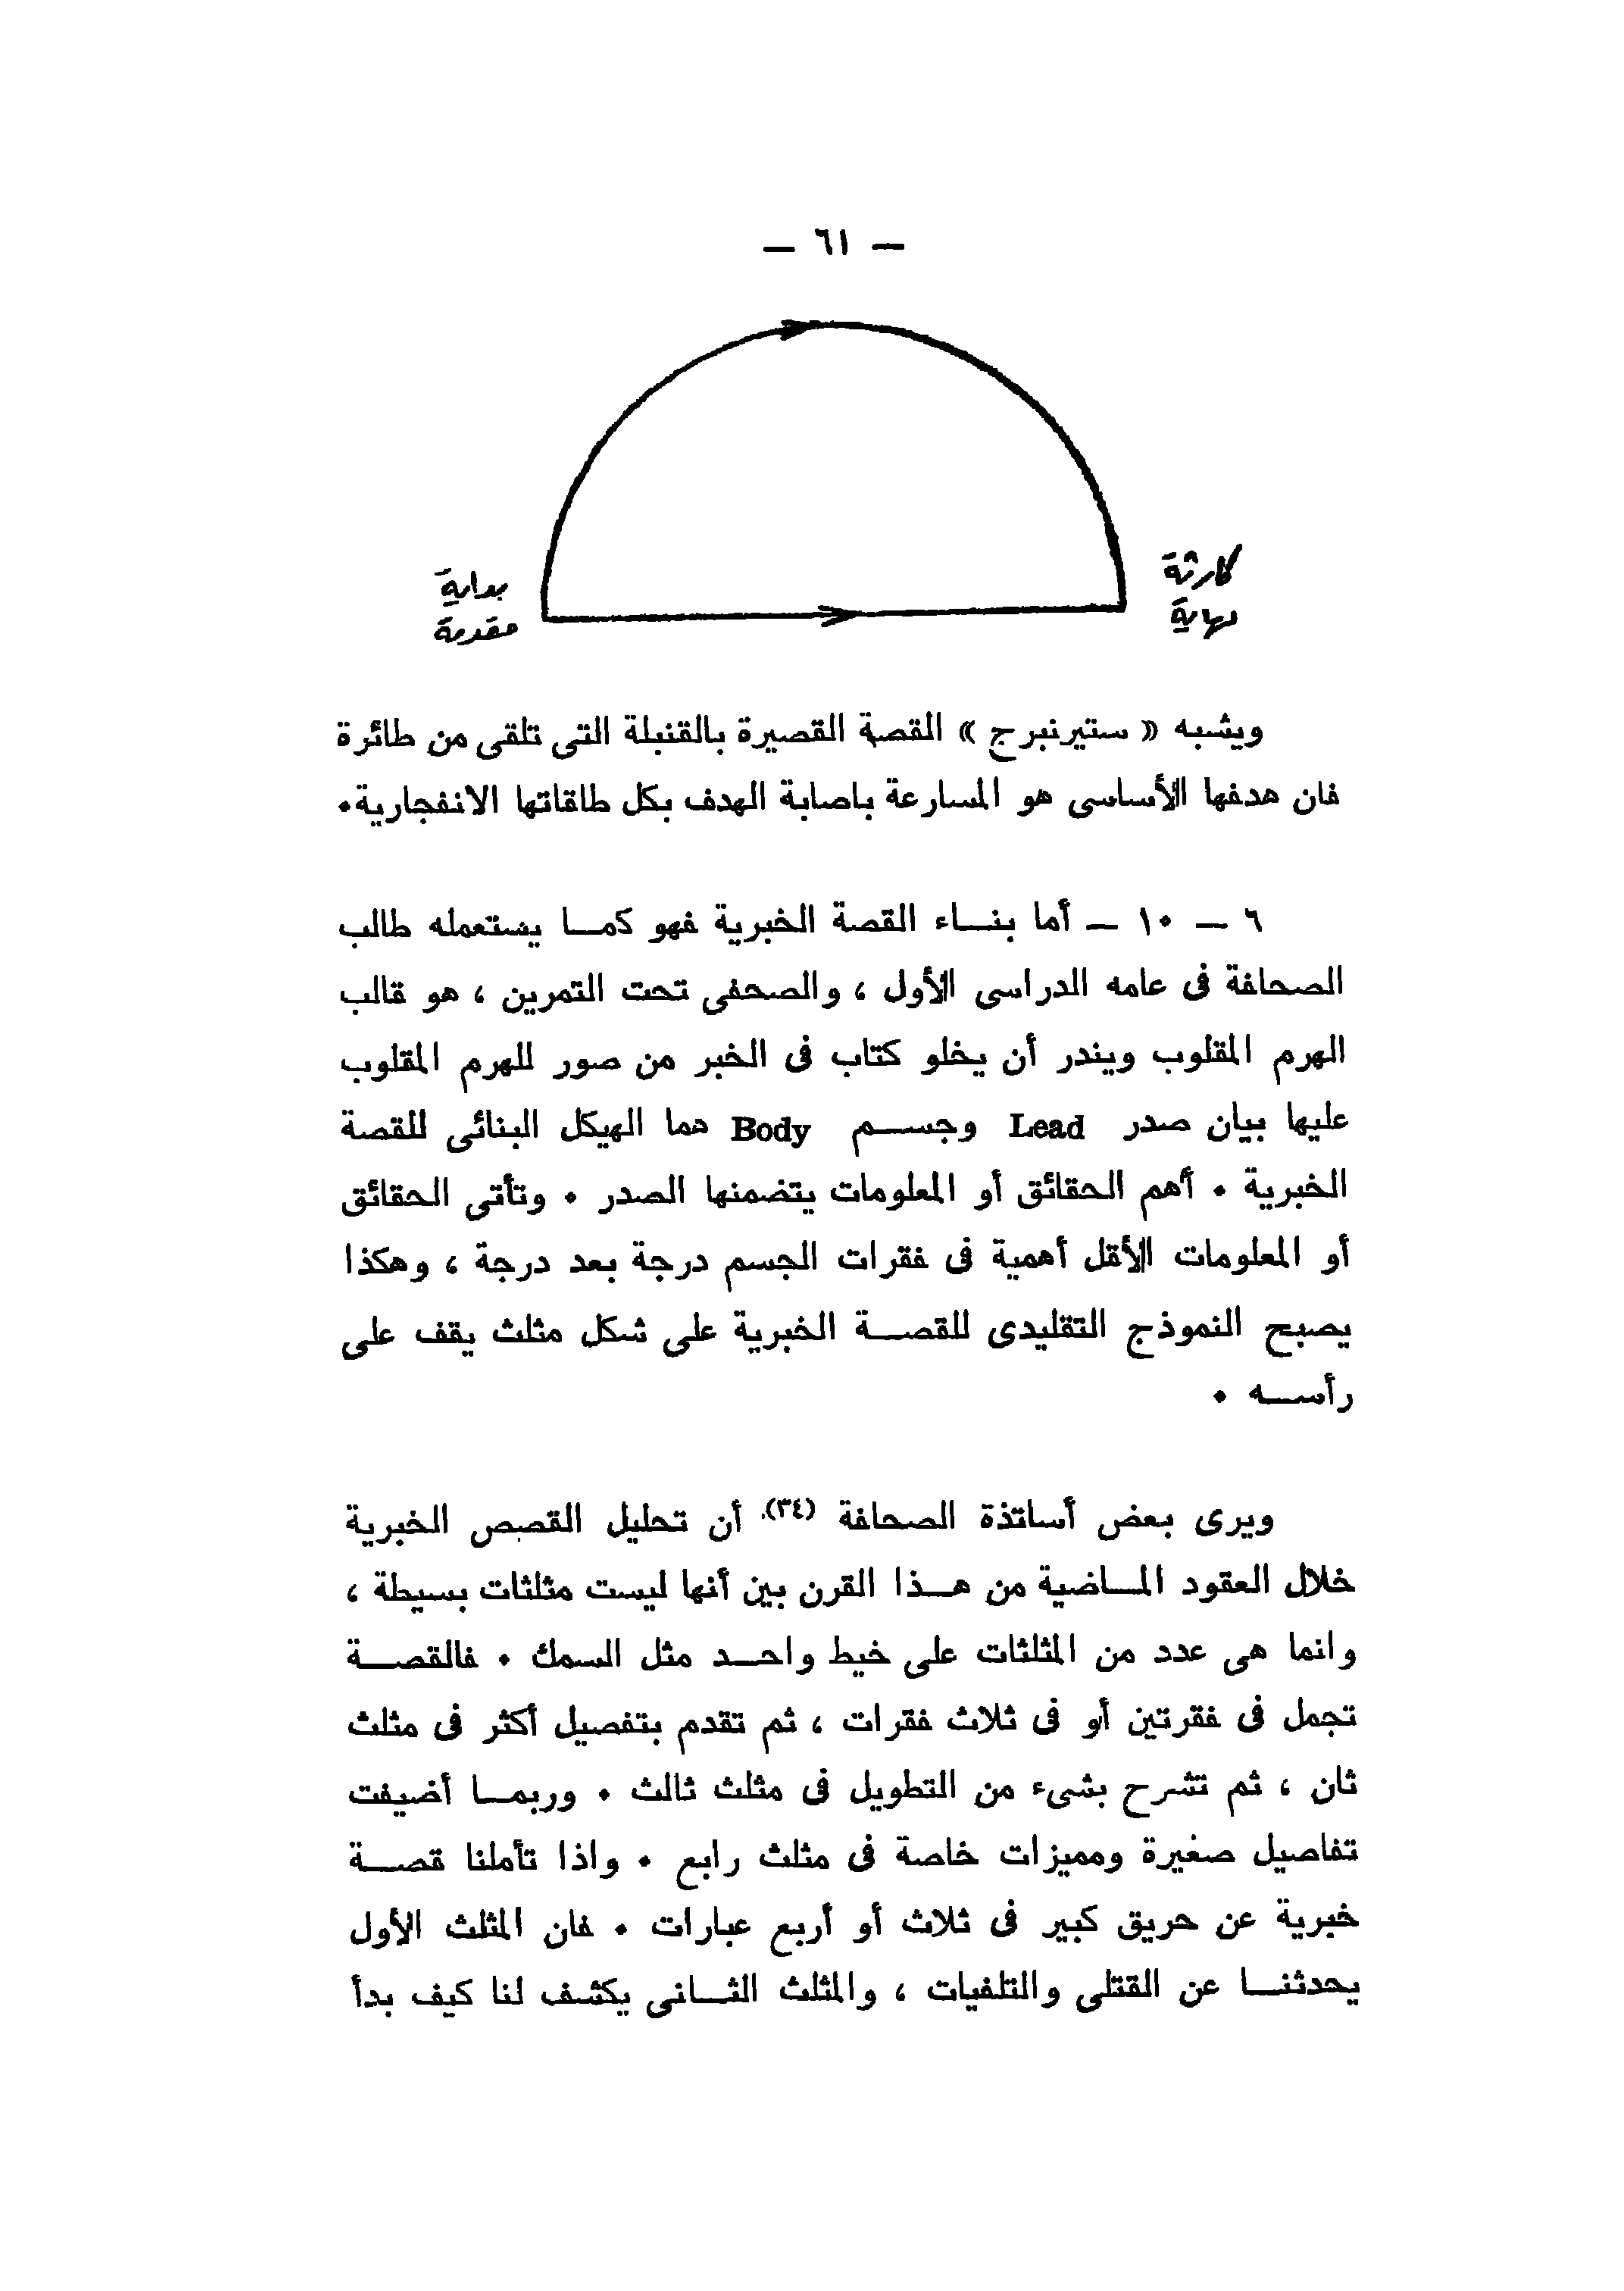 — ٦١ —
كارثة
نهاية
بداية
مقدمة
ويشبه « ستيرنبرج » القصة القصيرة بالقنبلة التى تلقى من طائرة
فان هدفها الأساسى هو المسارعة باصابة الهدف بكل طاقاتها الانفجارية.
٦ — ١٠ — أما بنـــاء القصة الخبرية فهو كمـــا يستعمله طالب
الصحافة فى عامه الدراسى الأول ، والصحفى تحت التمرين ، هو قالب
الهرم المقلوب ويندر أن يخلو كتاب فى الخبر من صور للهرم المقلوب
عليها بيان صدر Lead وجســـم Body هما الهيكل البنائى للقصة
الخبرية . أهم الحقائق أو المعلومات يتضمنها الصدر . وتأتى الحقائق
أو المعلومات الأقل أهمية فى فقرات الجسم درجة بعد درجة ، وهكذا
يصبح النموذج التقليدى للقصـــة الخبرية على شكل مثلث يقف على
رأســـه .
ويرى بعض أساتذة الصحافة (٣٤) أن تحليل القصص الخبرية
خلال العقود المـــاضية من هـــذا القرن بين أنها ليست مثلثات بسيطة ،
وانما هى عدد من المثلثات على خيط واحـــد مثل السمك . فالقصـــة
تجمل فى فقرتين أو فى ثلاث فقرات ، ثم تقدم بتفصيل أكثر فى مثلث
ثان ، ثم تشرح بشىء من التطويل فى مثلث ثالث . وربمـــا أضيفت
تفاصيل صغيرة ومميزات خاصة فى مثلث رابع . واذا تأملنا قصـــة
خبرية عن حريق كبير فى ثلاث أو أربع عبارات . فان المثلث الأول
يحدثنـــا عن القتلى والتلفيات ، والمثلث الثـــانى يكشف لنا كيف بدأ